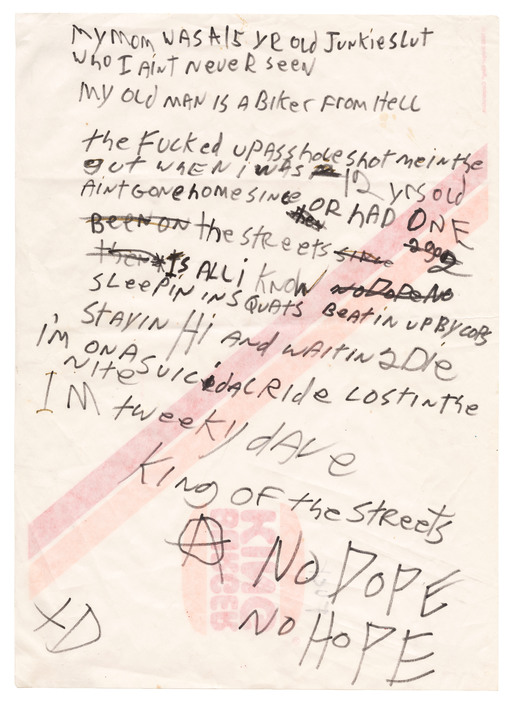 My MOM WAS A 15 YR Old Junkie Slut
who I Aint NeveR seen
My Old MAN IS A BikeR FROM Hell
the Fucked up Asshole shot me in the
gut wHEN i WAS 12 yrs old
AiNt gone home since OR HAD ONE
BeeN ON the streets since 2 go 2
then *Is All i know no Dope No
SLeePiN iN SQUATS BeAtiN UP BY COPS
StAyiN Hi And wAitiN 2 Die
i'm ON A SuiCidAl Ride lost iN the
Nite
I'M tweeky dAve
King OF the StReets
Ⓐ NO DOPE
NO HOPE
XD
BURGER
KING